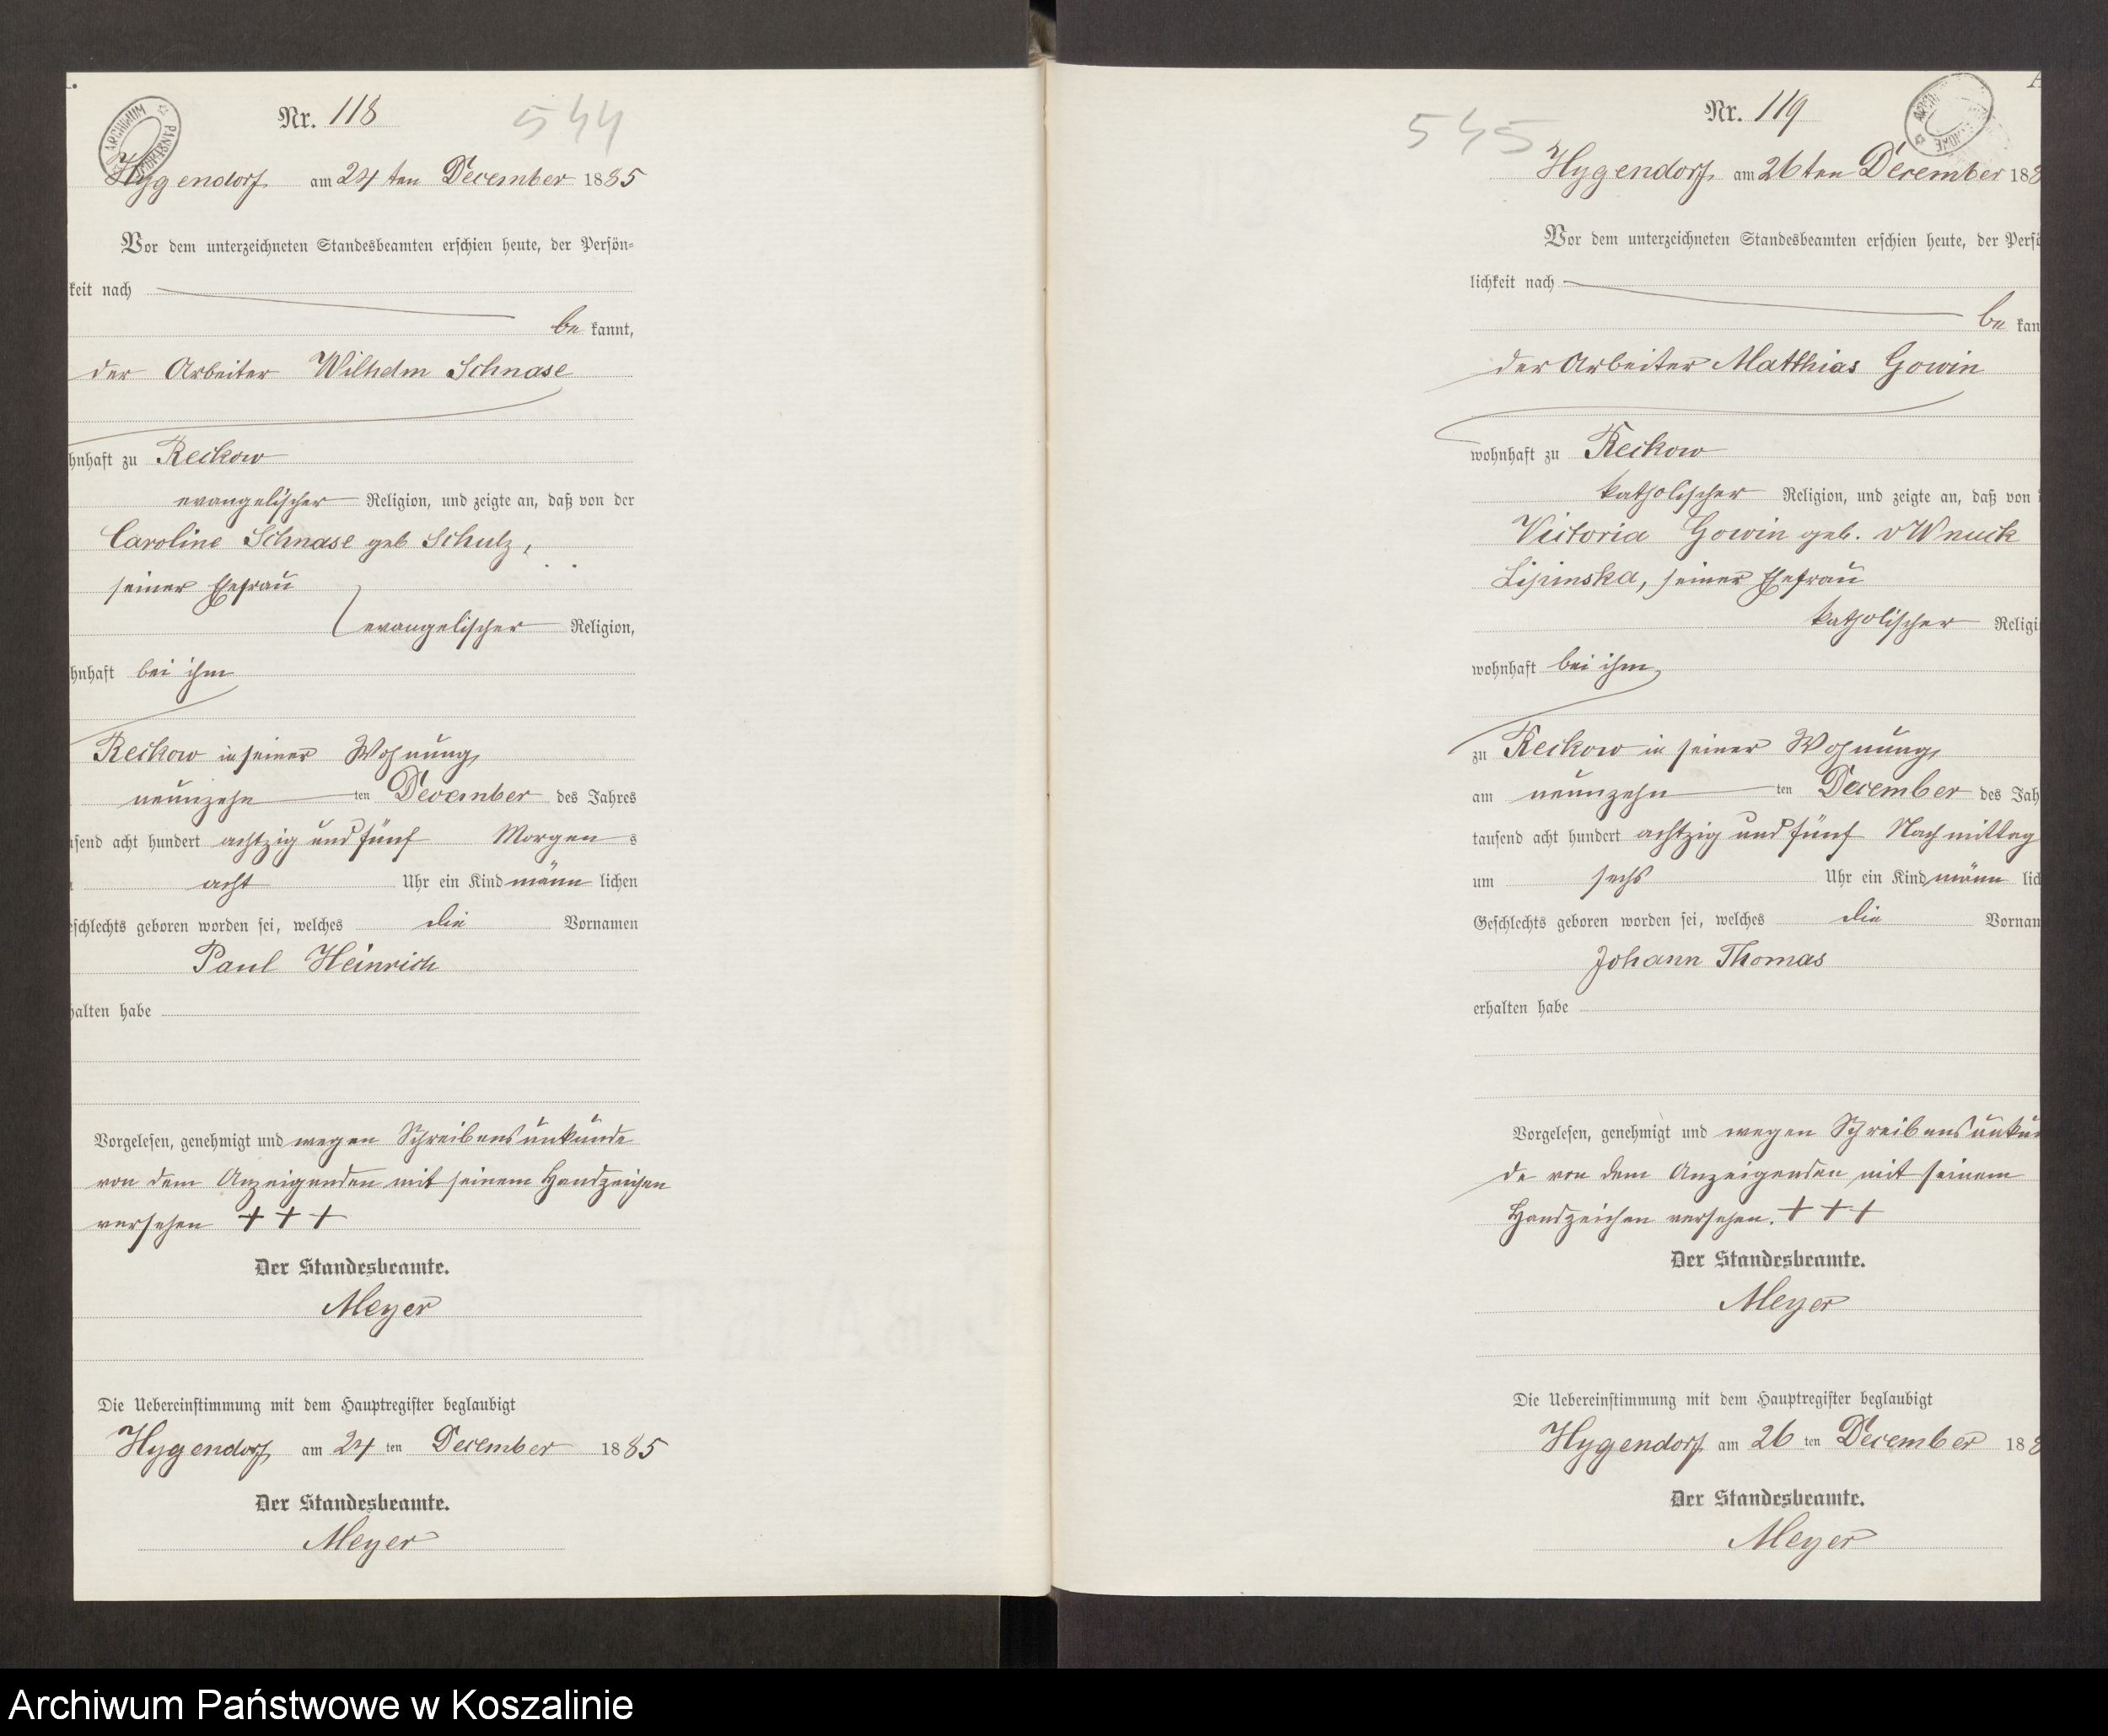 Nr. 118
544
Hygendorf am 24 ten December 1885
Vor dem unterzeichneten Standesbeamten erschien heute, der Persön-
keit nach
be kannt,
der Arbeiter Wilhelm Schnase
hnhaft zu Reckow
evangelischer Religion, und zeigte an, daß von der
Caroline Schnase geb Schulz,
seiner Ehefrau
evangelischer Religion,
hnhaft bei ihm
Reckow in seiner Wohnung,
neunzehn ten December des Jahres
usend acht hundert achtzig und fünf Morgen s
acht Uhr ein Kind männ lichen
eschlechts geboren worden sei, welches die Vornamen
Paul Heinrich
halten habe
Vorgelesen, genehmigt und wegen Schreibensunkunde
von dem Anzeigenden mit seinem Handzeichen
versehen +++
Der Standesbeamte.
Meyer
Die Uebereinstimmung mit dem Hauptregister beglaubigt
Hygendorf am 24 ten December 1885
Der Standesbeamte.
Meyer
Nr. 119
545
Hygendorf, am 26 ten December 188
Vor dem unterzeichneten Standesbeamten erschien heute, der Persö
lichkeit nach
be kan
der Arbeiter Matthias Gowin
wohnhaft zu Reckow
katholischer Religion, und zeigte an, daß von
Victoria Gowin geb. v Wnuck
Lipinska, seiner Ehefrau
katholischer Religi
wohnhaft bei ihm,
zu Reckow in seiner Wohnung,
am neunzehn ten December des Jah
tausend acht hundert achtzig und fünf Nachmittag
um sechs Uhr ein Kind männ lic
Geschlechts geboren worden sei, welches die Vornam
Johann Thomas
erhalten habe
Vorgelesen, genehmigt und wegen Schreibensunkun
de von dem Anzeigenden mit seinem
Handzeichen versehen. +++
Der Standesbeamte.
Meyer
Die Uebereinstimmung mit dem Hauptregister beglaubigt
Hygendorf am 26 ten December 188
Der Standesbeamte.
Meyer
Archiwum Państwowe w Koszalinie